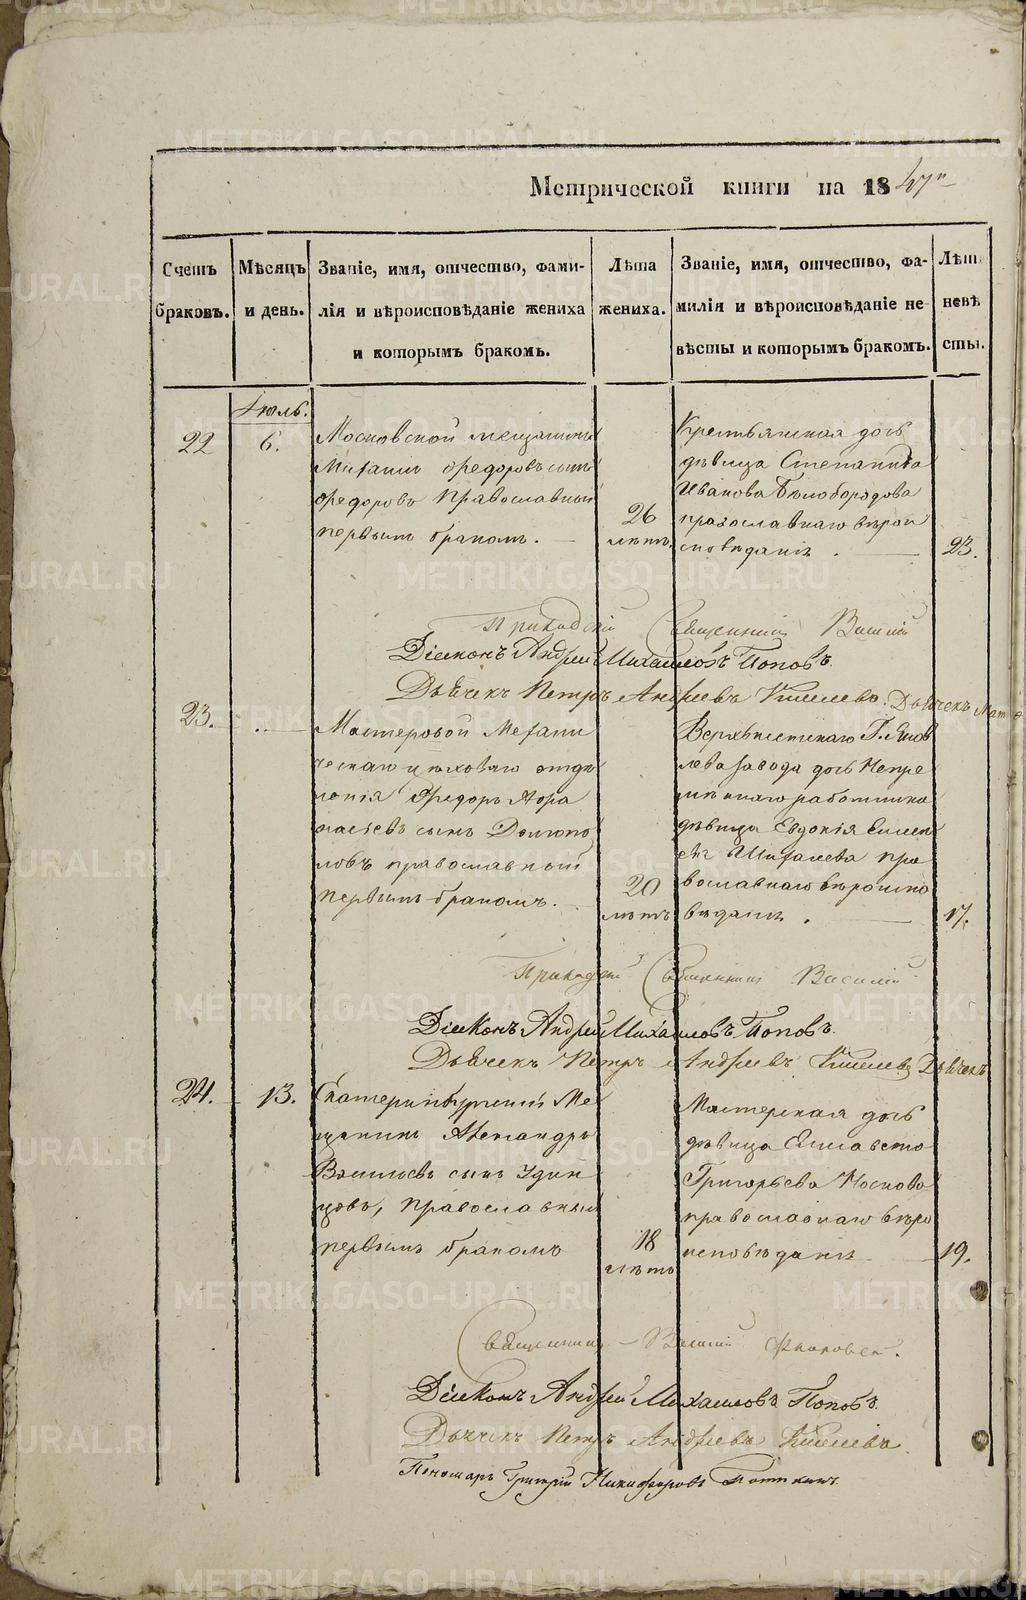 Метрической книги на 1847й
Счетъ браковъ.
Мѣсяцъ и день.
Званіе, имя, отчество, фами-
лія и вѣроисповѣданіе жениха
и которымъ бракомъ.
Лѣта жениха.
Званіе, имя, отчество, фа-
милія и вѣроисповѣданіе не-
вѣсты и которымъ бракомъ.
Лѣт невѣ сты.
Іюль.
22
6.
Московской мещанинъ
Михаилъ Федоровъ сынъ
Федоровъ Православный
первымъ бракомъ.
26
лѣтъ.
Крестьянская дочь
дѣвица Степанида
Иванова Бѣлобородова
православнаго вѣрои
сповѣданія.
23.
Приходскій Священникъ Василій
Діаконъ Андрей Михаиловъ Поповъ.
Дьячекъ Петръ Андреевъ Киселевъ. Дьячекъ
23.
Мастеровой Механи
ческаго цѣховаго отдѣ
ленія Федоръ Афана
сьевъ сынъ Долгопо
ловъ православный
первымъ бракомъ.
20
лѣтъ
Верхъисетскаго Г. Яков
лева завода дочь Непре
мѣннаго работника
дѣвица Евдокія
пра
вославнаго вѣроиспо
вѣданія.
17.
Приходскій Священникъ Василій
Діаконъ Андрей Михаиловъ Поповъ.
Дьячекъ Петръ Андреевъ Киселевъ Дьячекъ
24.
13.
Екатеринбургскій Ме
щанинъ Александръ
Васильевъ сынъ Удин
цовъ, православный
первымъ бракомъ
18
лѣтъ
Мастерская дочь
дѣвица Елисавета
Григорьева Носкова
православнаго вѣро
исповѣданія
19.
Священникъ Василій
Діаконъ Андрей Михаиловъ Поповъ.
Дьячекъ Петръ Андреевъ Киселевъ.
Пономарь Григорій Никифоровъ
METRIKI.GASO-URAL.RU